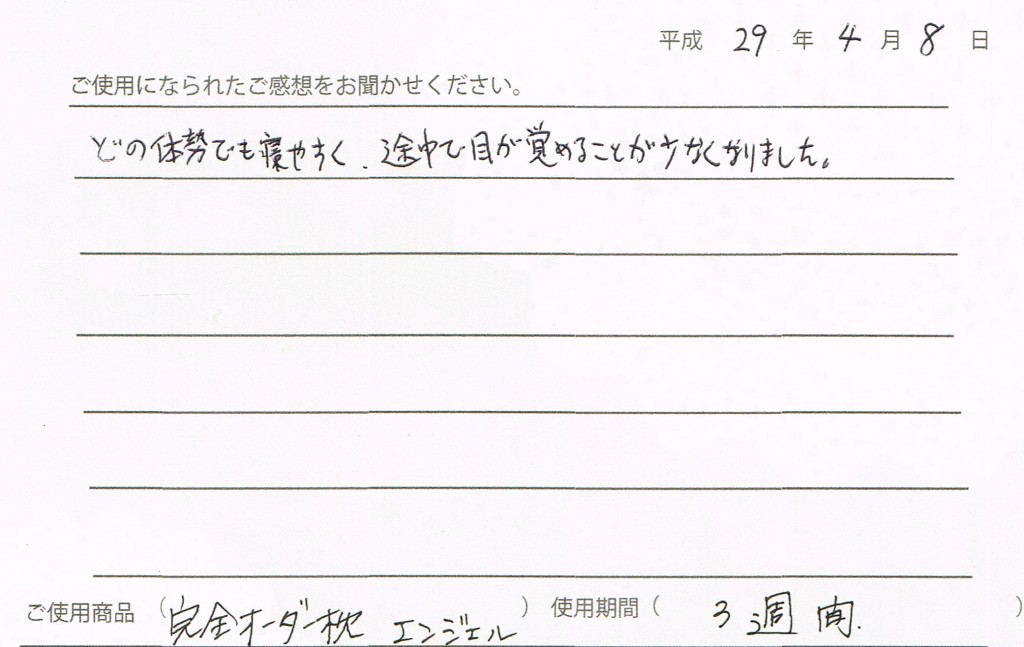 平成 29 年 4 月 8 日
ご使用になられたご感想をお聞かせください。
どの体勢でも寝やすく、途中で目が覚めることが少なくなりました。
ご使用商品 (完全オーダー枕 エンジェル) 使用期間 ( 3週間. )